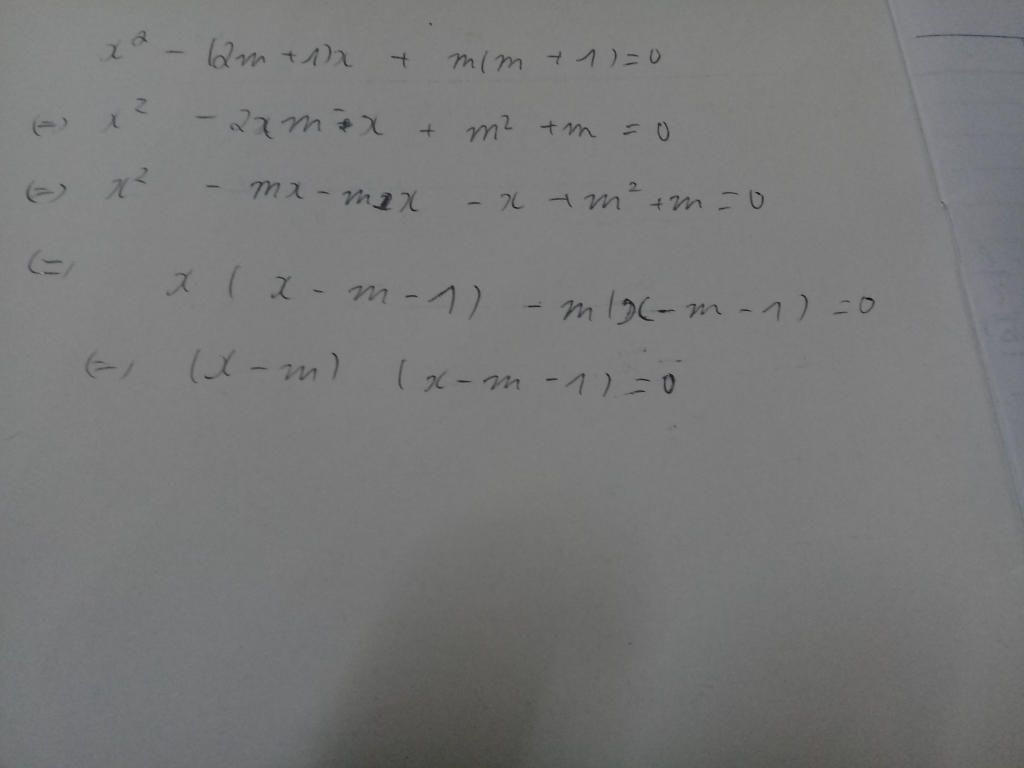 x² - (2m + 1)x + m(m + 1) = 0
(=) x² - 2xm - x + m² + m = 0
(=) x² - mx - mx - x + m² + m = 0
(=) x ( x - m - 1) - m(x - m - 1) = 0
(=) (x - m) (x - m - 1) = 0